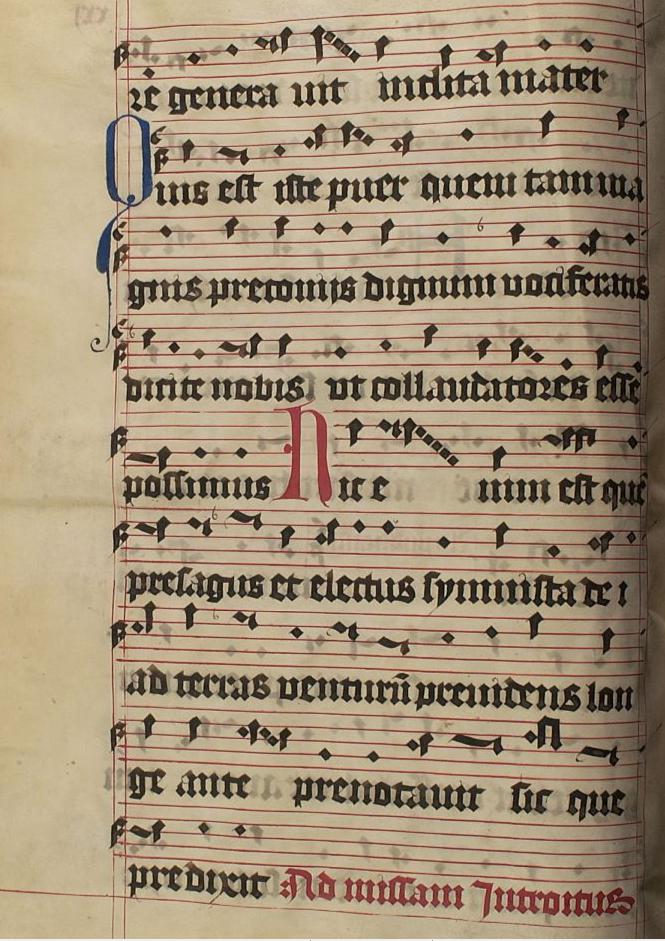 re genera uit inclita mater
Quis est iste puer quem tam ma
gnis preconijs dignum vociferatis
dicite nobis ut collaudatores esse
possimus Hic e nim est quē
presagus et electus symmista de i
ad terras venturū preuidens lon
ge ante prenotauit sic que
predixit Ad missam Introitus